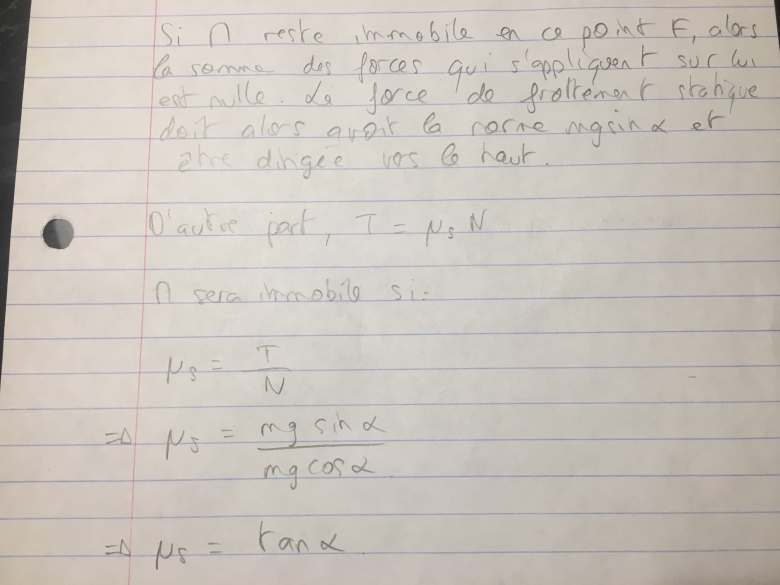 Si M reste immobile en ce point F, alors
la somme des forces qui s'appliquent sur lui
est nulle. La force de frottement statique
doit alors avoir la norme mg sin α et
être dirigée vers le haut.
D'autre part, T = μs N
M sera immobile si:
μs = T / N
⇒ μs = mg sin α / mg cos α
⇒ μs = tan α.